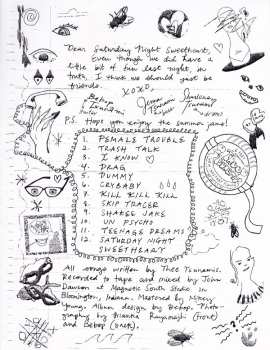 Dear Saturday Night Sweetheart,
Even though we did have a
little bit of fun last night, in
truth, I think we should just be
friends.
XOXO,
P.S. Hope you enjoy the summer jams!
1. FEMALE TROUBLE
2. TRASH TALK
3. I KNOW
4. DRAG
5. DUMMY
6. CRYBABY
7. KILL KILL KILL
8. SKIP TRACER
9. SHAKEE JAKE
10. UN PSYCHO
11. TEENAGE DREAMS
12. SATURDAY NIGHT
SWEETHEART
All songs written by Thee Tsunamis.
Recorded to tape and mixed by John
Dawson at Magnetic South Studio in
Bloomington, Indiana. Mastered by
Album design by Bebop. Photo-
graphy by (front)
and Bebop (back).